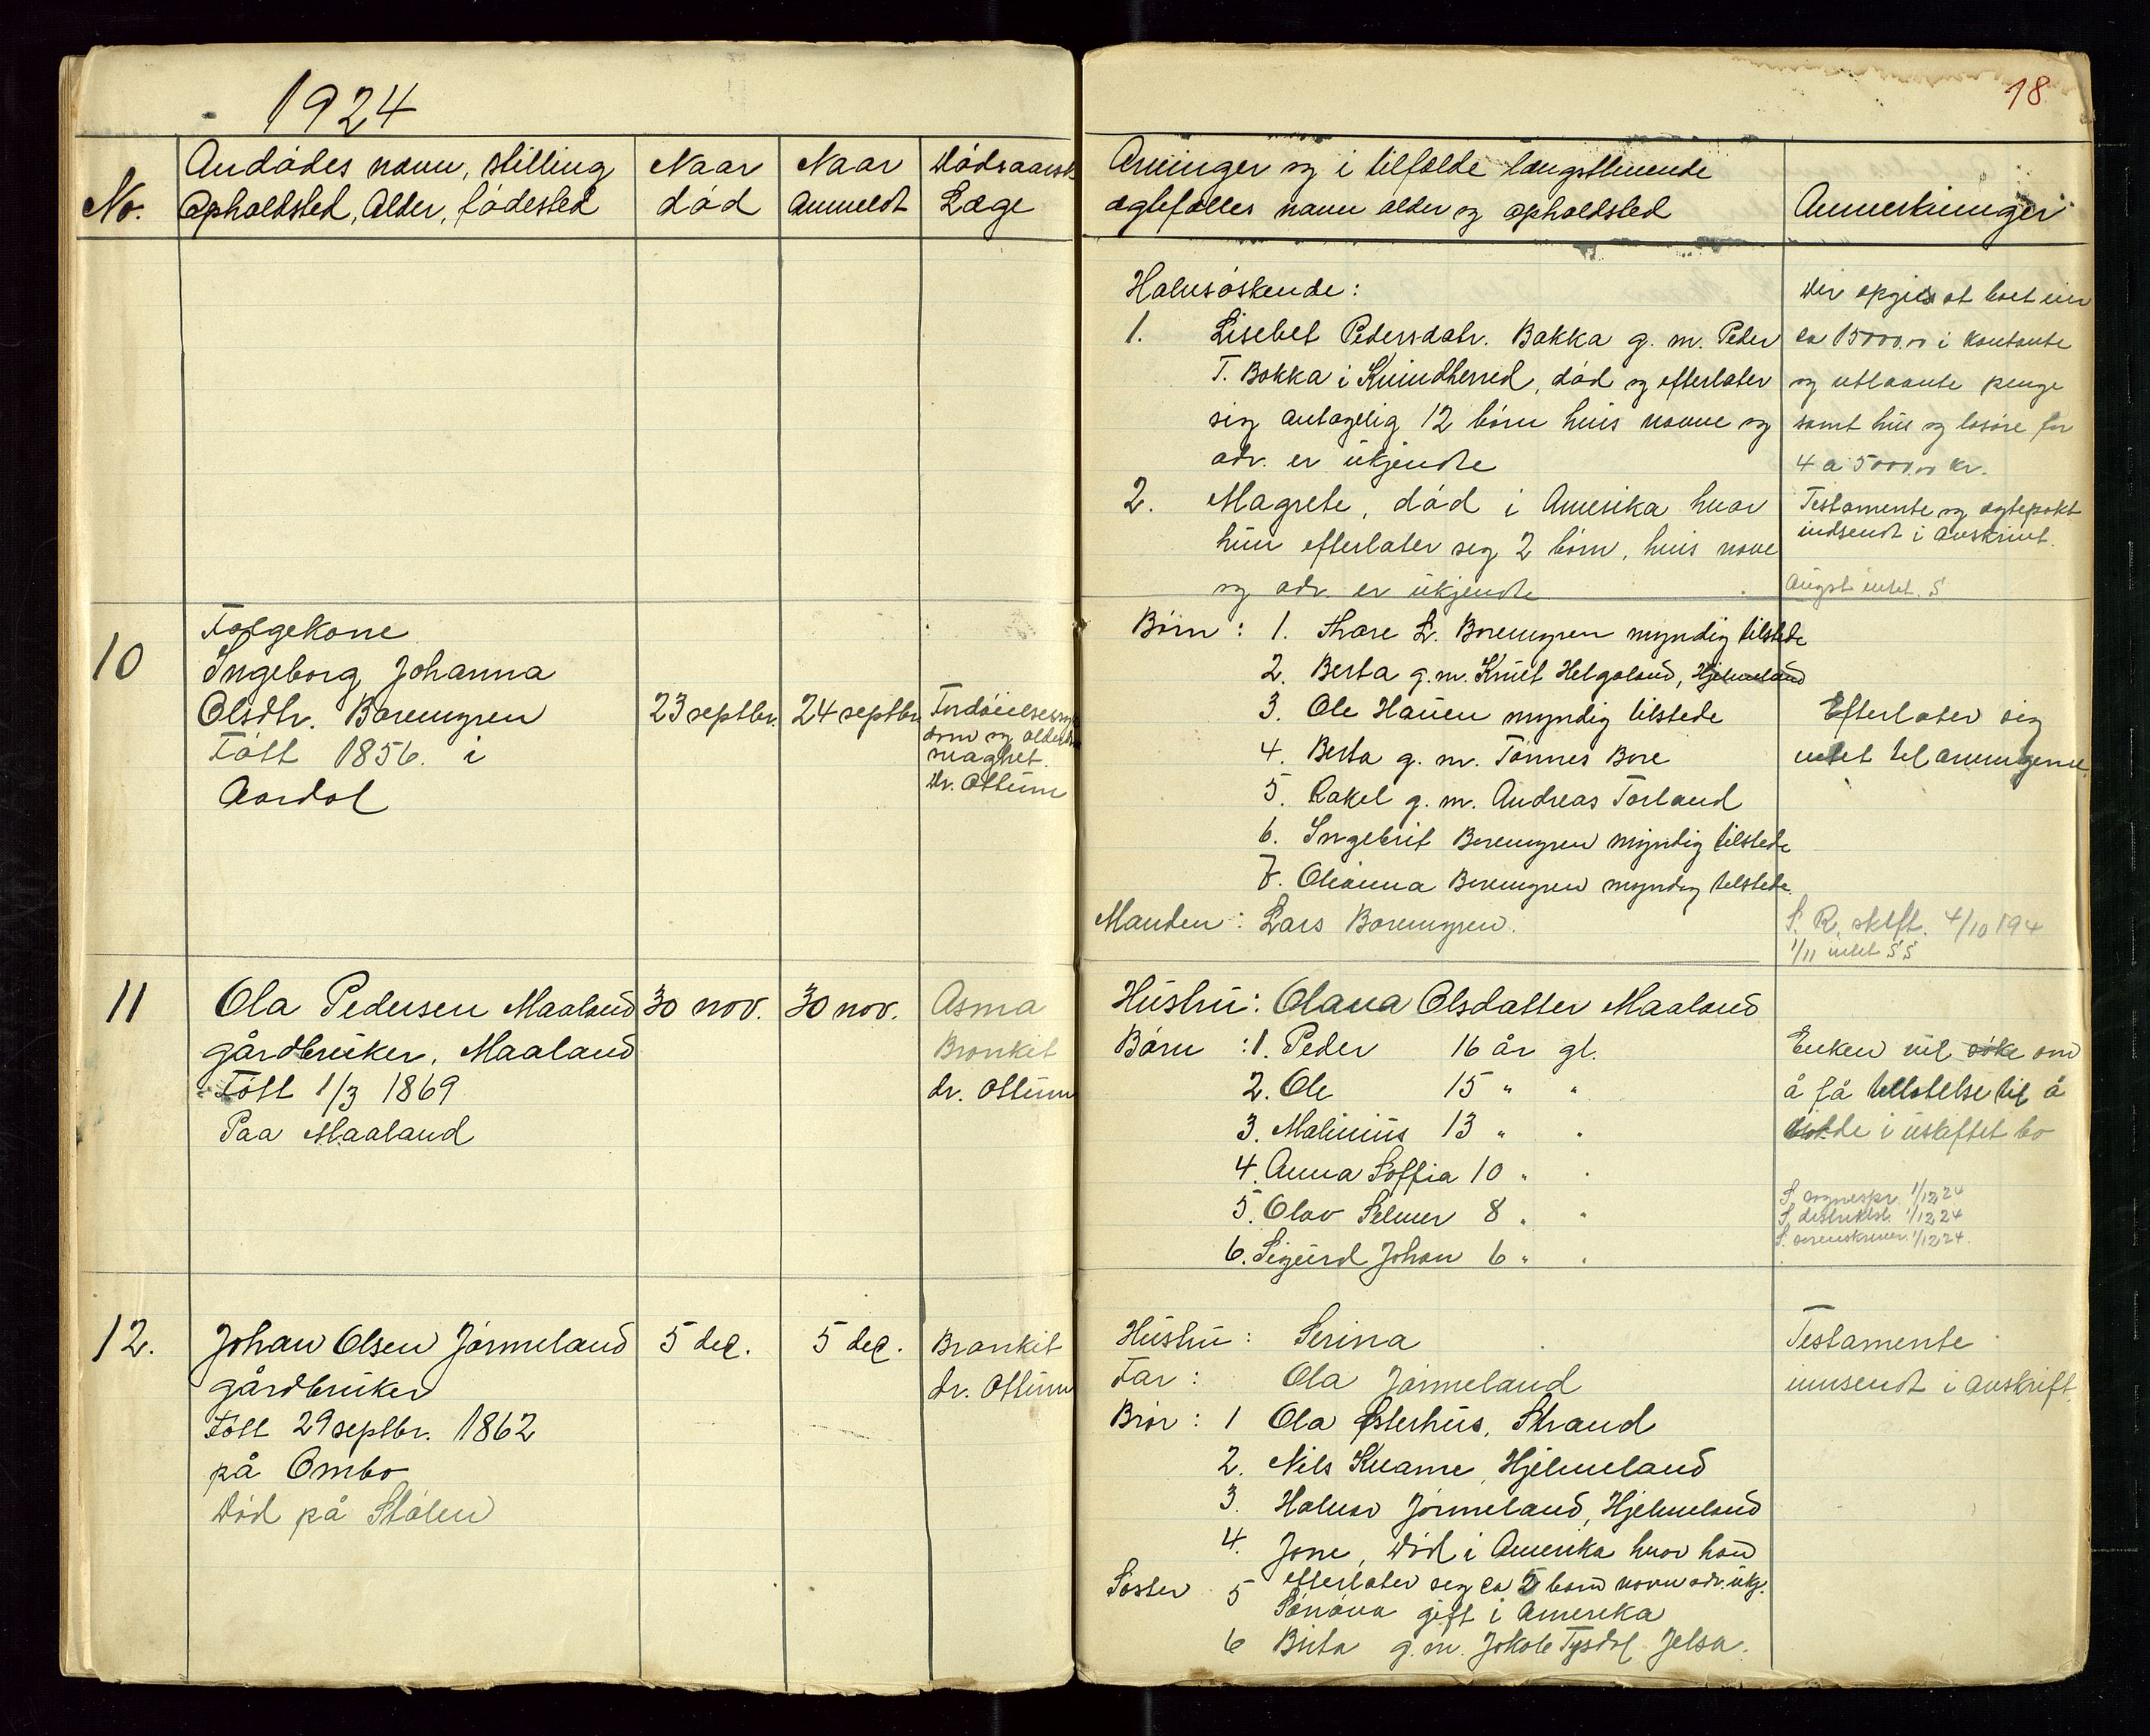 1924
18
No.
Avdødes navn, stilling
Opholdsted, Alder, fødested
Naar
død
Naar
Anmeldt
Dødsaarsk
Læge
Arvinger og i tilfælde længstlevende
ægtefælles navn alder og opholdsted
Anmerkninger
Halvsøskende:
1. Lisebet Pedersdatr. Bakka g. m. Peder
T. Bakka i Kvindherred, død og efterlater
sig antagelig 12 børn hvis navne og
adr. er ukjendte
2. Magrete, død i Amerika hvor
hun efterlater seg 2 børn, hvis navne
og adr. er ukjendte
Der opgives at boet eier
ca 15000.00 i kontante
og utlaante penge
samt hus og løsøre for
4 a 5000.00 kr.
Testamente og ægtepakt
indsendt i avskrivt.
10
Folgekone
Ingeborg Johanna
Olsdtr. Boremyren
Født 1856. i
Aardal
23 septbr.
24 septbr.
Fordøielsessyg
dom og alderdoms
svaghet.
Dr. Ottum
Børn: 1. Thore L. Boremyren myndig tilstede
2. Berta g. m. Knut Helgaland, Hjelmeland
3. Ole Hauen myndig tilstede
4. Berta g. m. Tønnes Bore
5. Rakel g. m. Andreas Torland
6. Ingebrit Boremyren myndig tilstede
7. Olianna Boremyren myndig tilstede.
Manden: Lars Boremyren.
Efterlater sig
intet til arvingerne.
S. R. skift. 4/10 194
1/11 intet
11
Ola Pedersen Maaland
gårdbruker, Maaland
Født 1/3 1869
Paa Maaland
30 nov.
30 nov.
Asma
Bronkit
dr. Ottum
Hustru: Olava Olsdatter Maaland
Børn: 1. Peder 16 år gl.
2. Ole 15 " "
3. Malinius 13 " "
4. Anna Soffia 10 " "
5. Olav Selmer 8 " "
6. Sigurd Johan 6 " "
Enken vil søke om
å få tillatelse til å
sidde i uskiftet bo
S. sognespr. 1/12 24
S. distriktsl. 1/12 24
S. sorenskriver. 1/12 24.
12.
Johan Olsen Jørmeland
gårdbruker
Født 29 septbr. 1862
på Ombo
Død på Stølen
5 dec.
5 dec.
Bronkit
dr. Ottum
Hustru: Serina
Far: Ola Jørmeland
Brør: 1 Ola Østerhus, Strand
2. Nils Kvame, Hjelmeland
3. Halvor Jørmeland, Hjelmeland
4. Jone, Død i Amerika hvor han
efterlater seg ca 5 barn navn adr. ukj.
Søster 5 gift i Amerika
6 Birta g. m. Jakob Tysdal Jelsa.
Testamente
innsendt i avskrift.